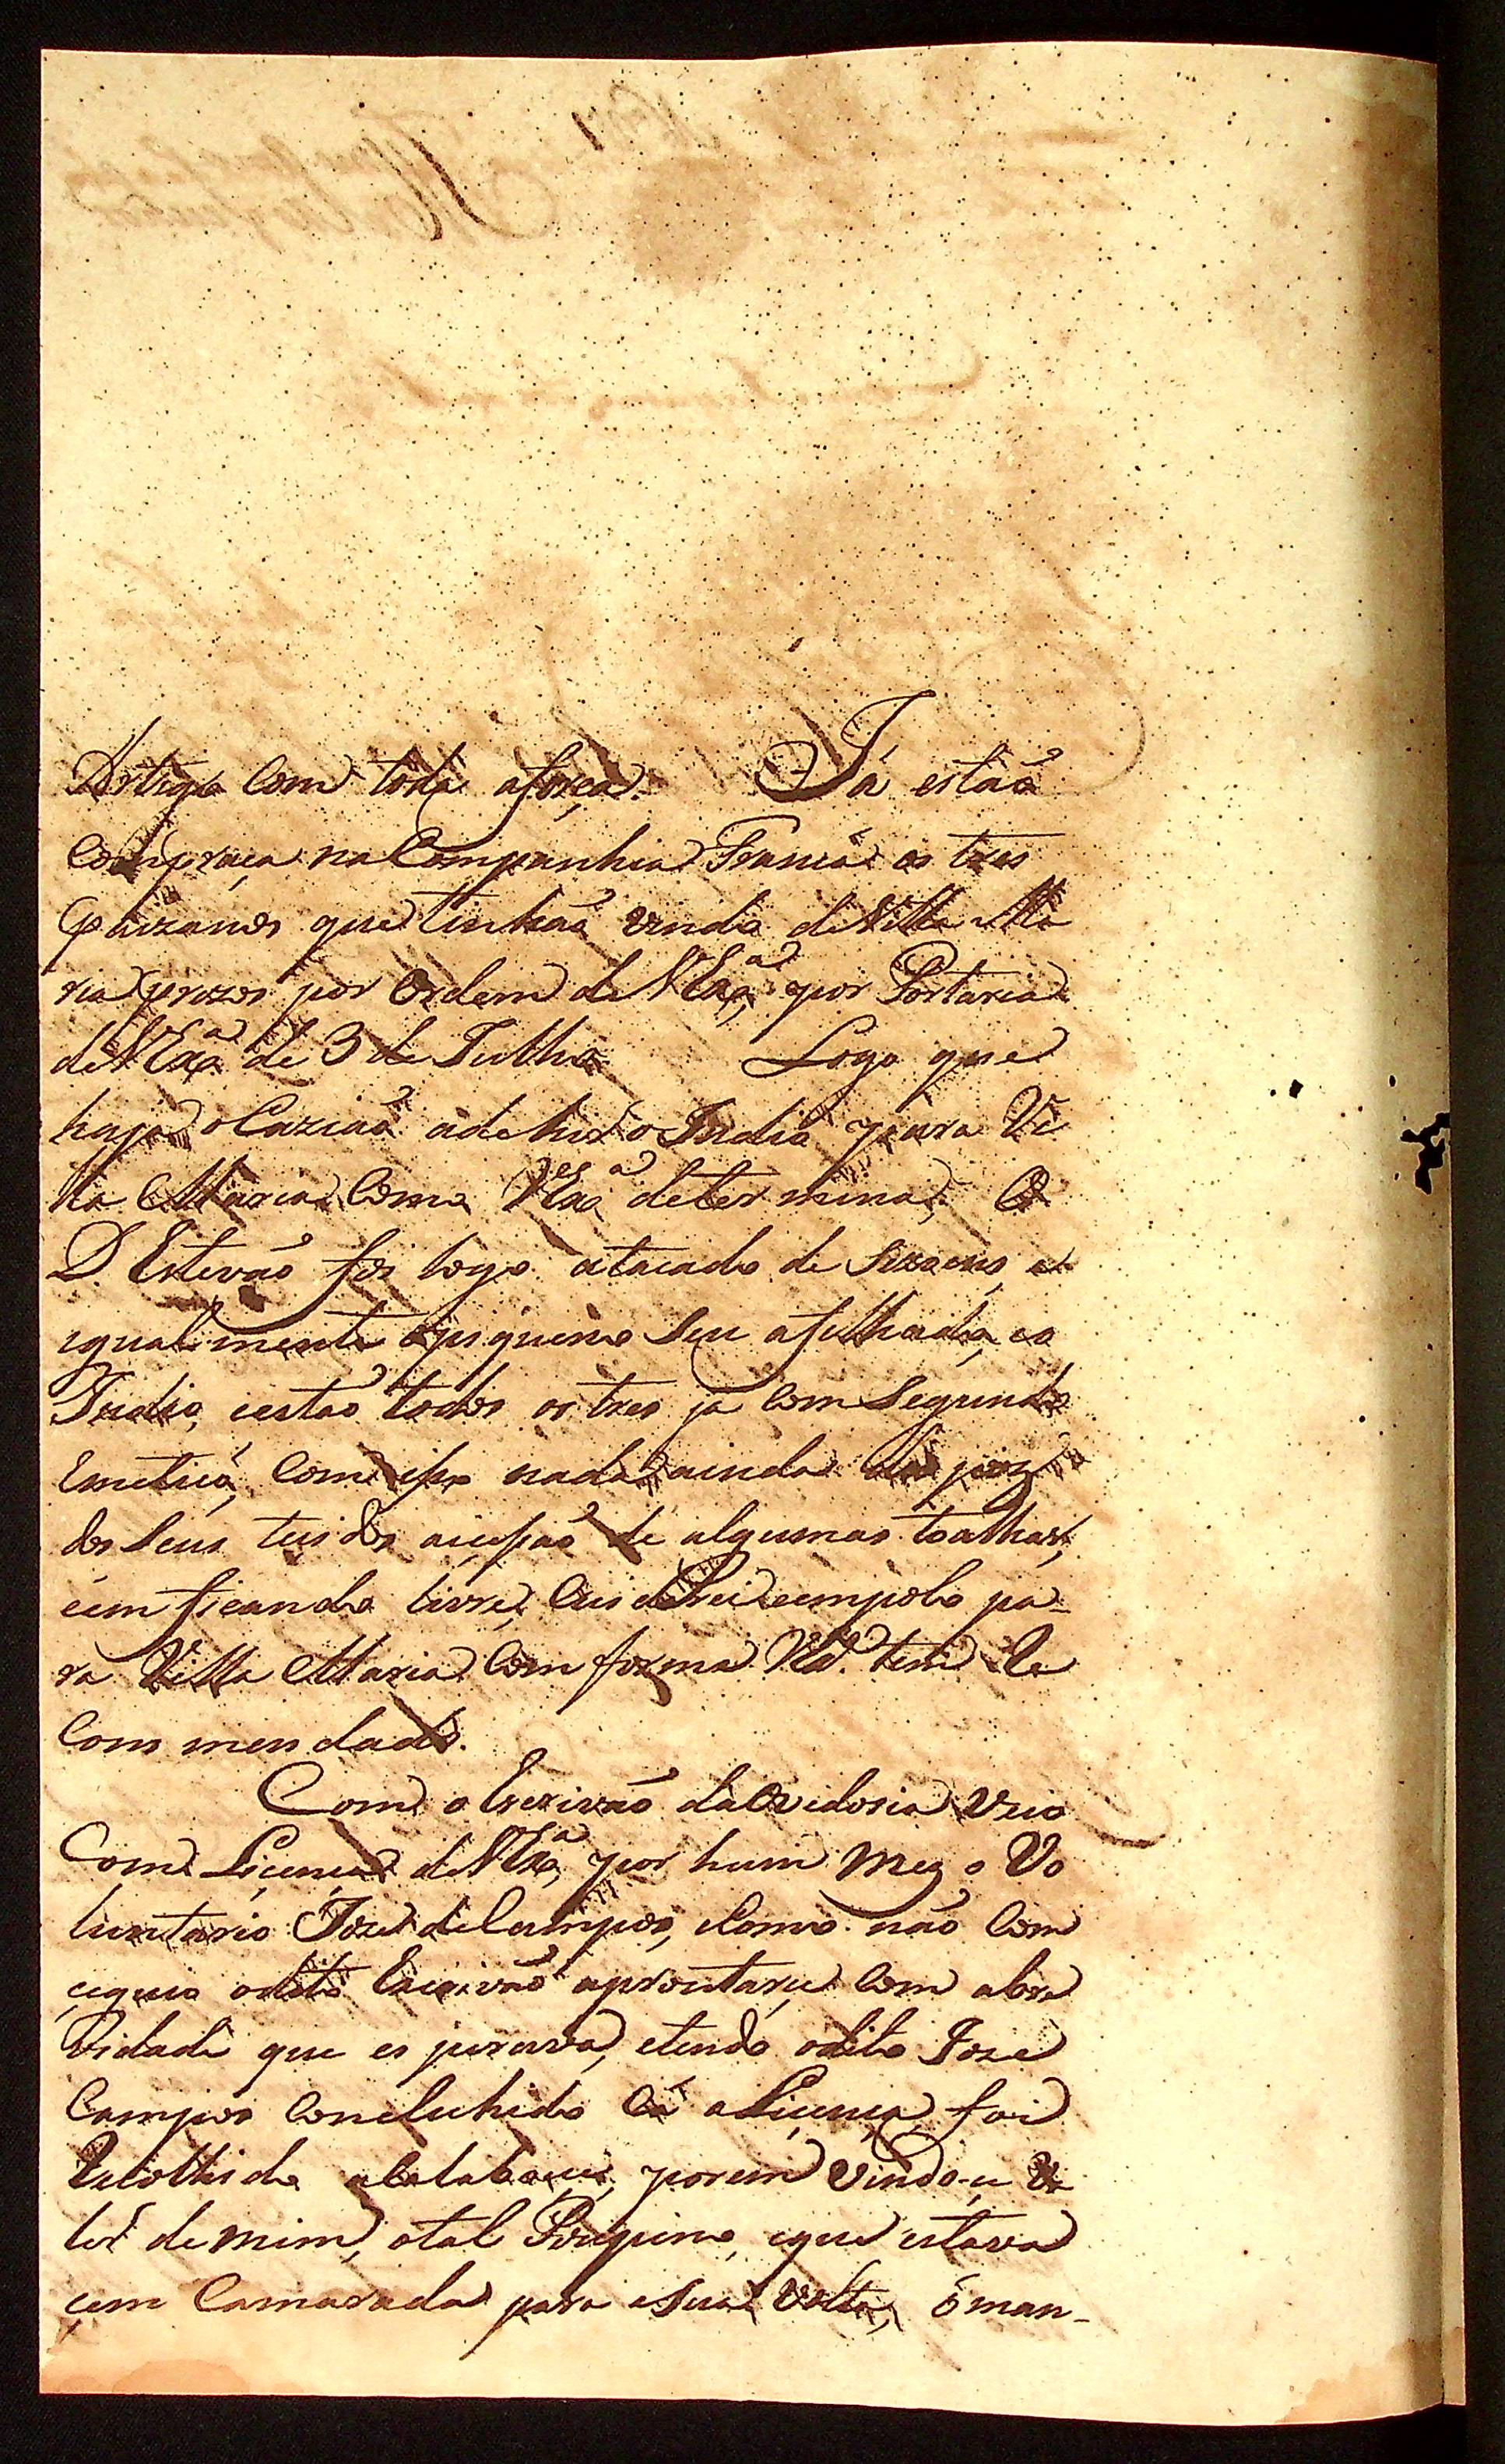 Artigo Com toda aforça. Já estaõ
Com praça na Companhia Franca os tres
Paizanos que tinhaõ vindo de Villa Ma
ria prezos por Ordem de VExa, por Portaria
de VExa de 3 de Julho. Logo que
haja ocaziaõ adehir o Indio para Vi
lla Maria Como VExa determina; O
D. Estevaõ foi logo atacado de Sezoens, e
igualmente opiqueno Seu afilhado, eo
Indio, eestaõ todos os tres já Com Segundo
Emetico, Com isso nada ainda
dos Seus teidos aiesaõ de algumas toalhas,
eem ficando livre, Cuidarei empolo pa-
ra Villa Maria Comforma VEx. tem Re
Commendado.
Com o Escrivaõ da Ovidoria Veio
Com Licença de VExa, por hum Mez o Vo
luntario Joze de Campos, eComo não Com
ceguio odito Escrivaõ aprontarce Com abre
Vidade que esperava, etendo odito Joze
Campos Concluhido Cá aLicença foi
Recolhido, porem Vindo-ce Va
ler de mim, otal Porquino, eque estava
cem Camarada para aSua Volta, ó man-